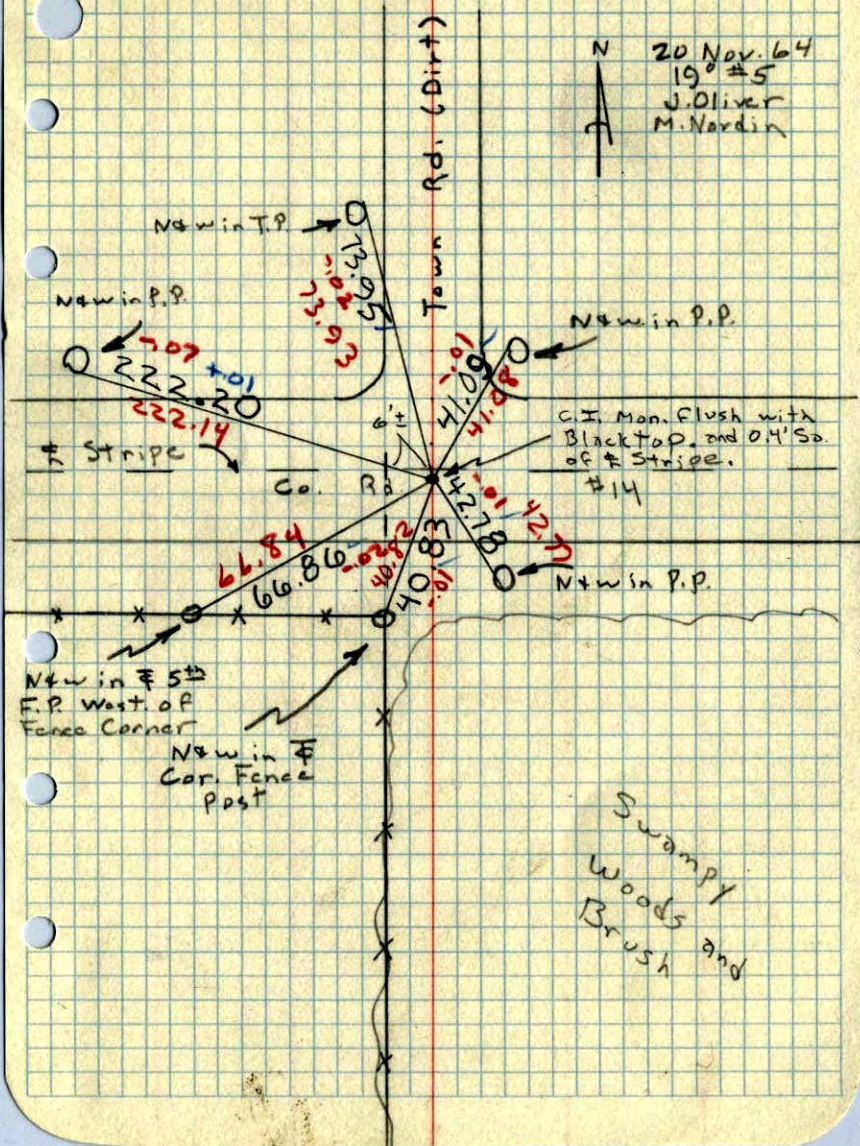 N
20 Nov. 64
19° #5
J. Oliver
M. Nordin
Town Rd. (Dirt)
N&W in T.P.
73.95
-.02
73.93
N&W in P.P.
-.07 +.01
222.20
222.14
N&W in P.P.
-.01
41.09
41.08
6'±
C.I. Mon. flush with
Blacktop. and 0.4' So.
of ℄ Stripe.
#14
℄ Stripe
Co. Rd
-.01
42.78
42.77
N&W in P.P.
66.84
66.86
-.02
40.82
40.83
-.01
N&W in ℄ 5th
F.P. West. of
Fence Corner
N&W in ℄
Cor. Fence
Post
Swampy
Woods and
Brush